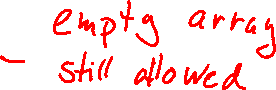 empty array
- still allowed